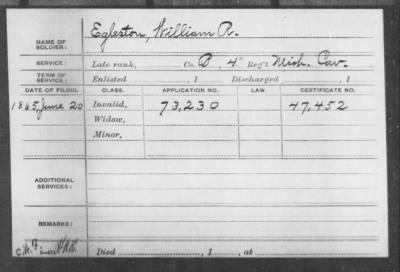 NAME OF SOLDIER: Egleston, William R.
SERVICE: Late rank, Co. B, 4" Reg't Mich. Cav.
TERM OF SERVICE: Enlisted , 1 Discharged , 1
DATE OF FILING. CLASS. APPLICATION NO. LAW. CERTIFICATE NO.
1865, June 20 Invalid, 73,230 47,452
Widow,
Minor,
ADDITIONAL SERVICES:
REMARKS:
Died , 1 , at